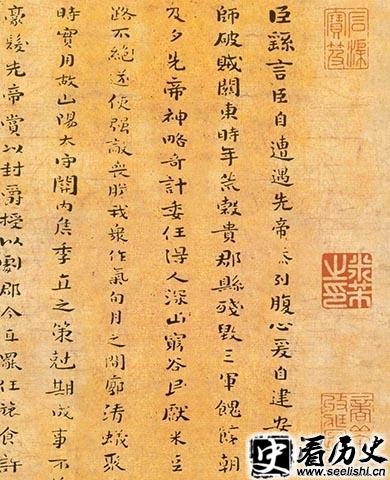 臣繇言臣自遭遇先帝忝列腹心爰自建安
師破賊關東時年荒穀貴郡縣殘毀三軍餽饟朝
及夕先帝神略奇計委任得人深山窮谷民獻米豆
路不絕遂使强敵喪膽我衆作氣旬月之間廓清蟻聚
時實用故山陽太守關內侯季直之策尅期成事不
豪髮先帝賞以封爵授以劇郡今直罷任旅食許
米芾之印
史看历史
www.seelishi.cn